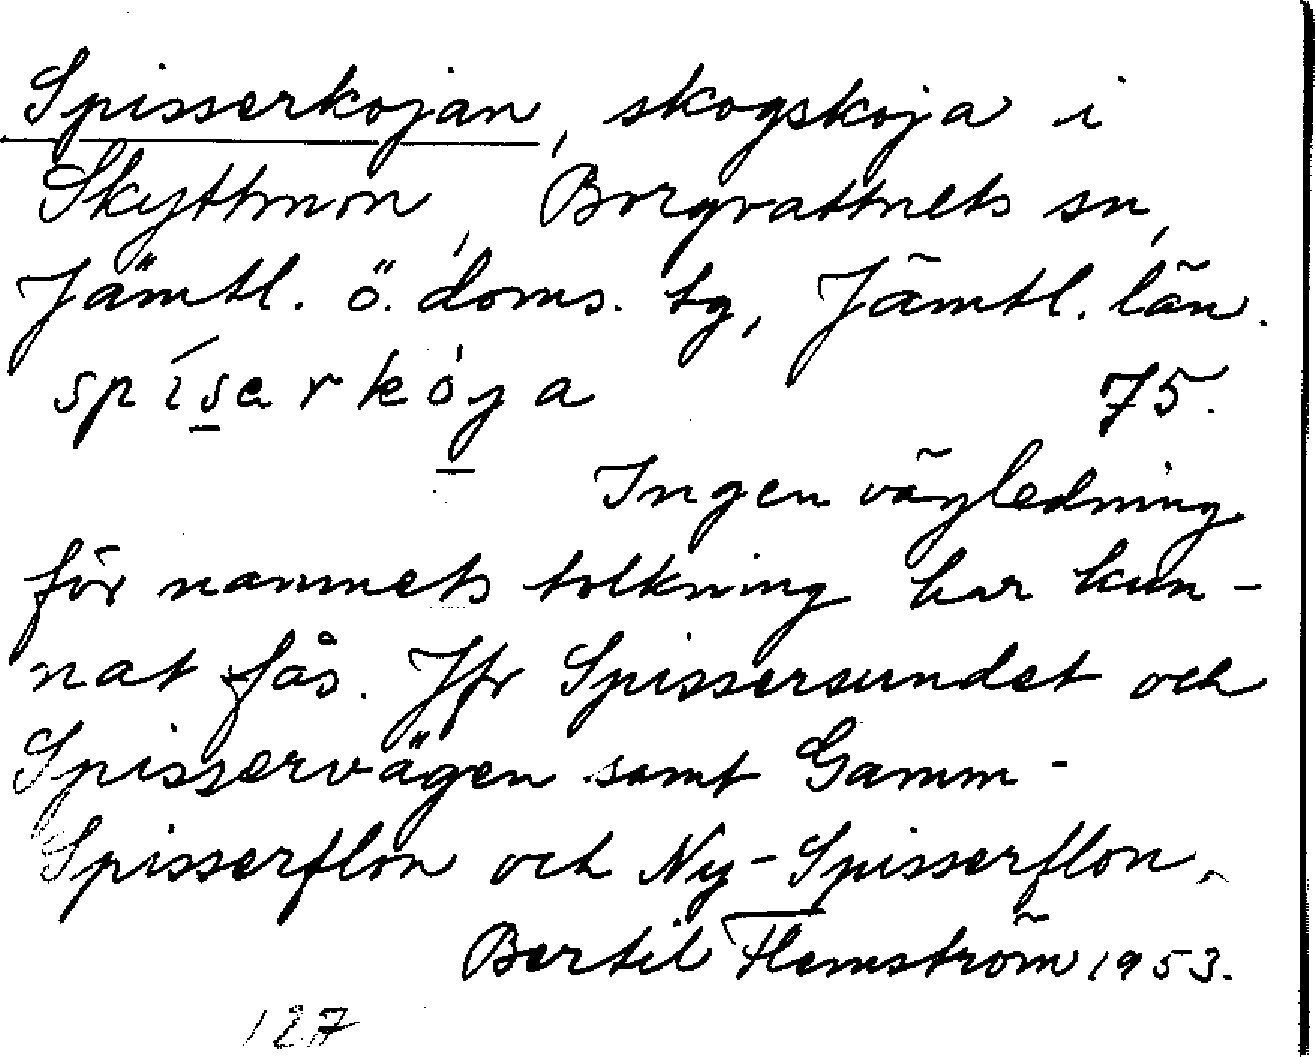 Spisserkojan, skogskoja i
Skyttmon, Borgvattnets sn,
Jämtl. ö. doms. tg, Jämtl. län.
spíserkòja 75.
Ingen vägledning
för namnets tolkning har kun-
nat fås. Jfr Spissersundet och
Spisservägen samt Gamm-
Spisserflon och Ny-Spisserflon.
Bertil Flemström 1953.
127